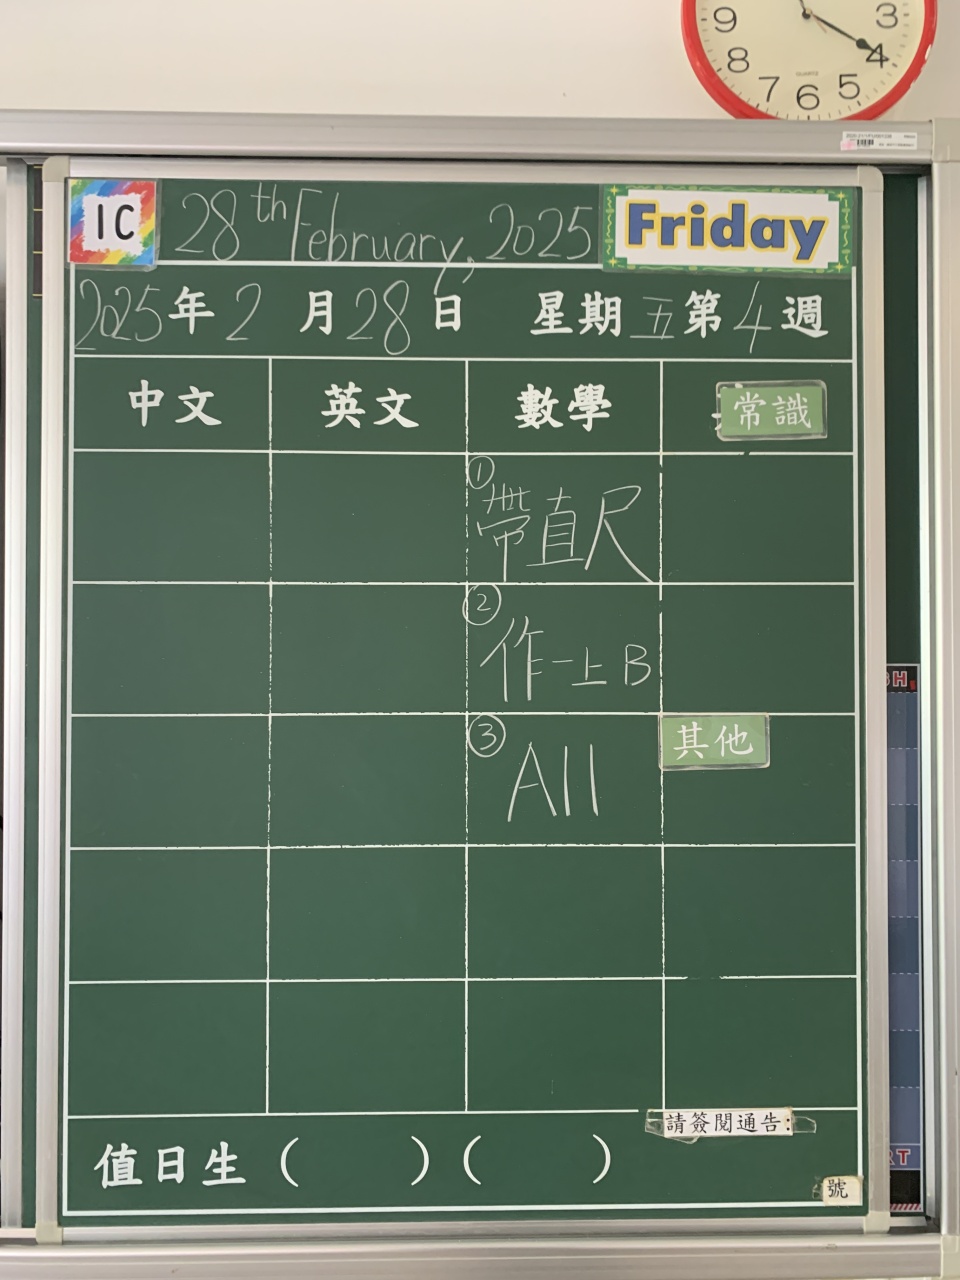 9 3
8 4
7 6 5
QUARTZ
1C 28th February, 2025 Friday
2025年2月28日 星期五第4週
中文 英文 數學 常識
① 帶直尺
② 作一上B
③ All
其他
請簽閱通告:
值日生 ( ) ( )
號